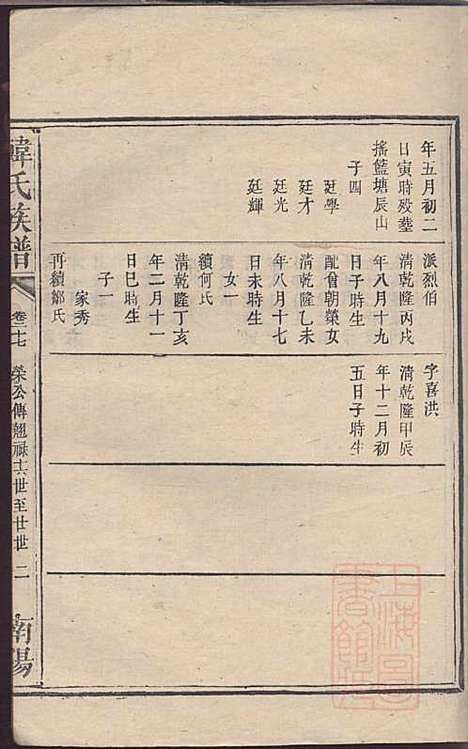 年五月初二
日寅時殁塟
搖籃塘辰山
子四
廷學
廷才
廷光
廷輝
派烈伯
清乾隆丙戌
年八月十九
日子時生
配曾朝榮女
清乾隆乙未
年八月十七
日未時生
女一
續何氏
清乾隆丁亥
年二月十一
日巳時生
子一
家秀
再續鄭氏
字喜洪
清乾隆甲辰
年十二月初
五日子時生
韓氏族譜
卷之七
榮公傳翹祿十六世至廿世
二
南陽
上海圖書館藏